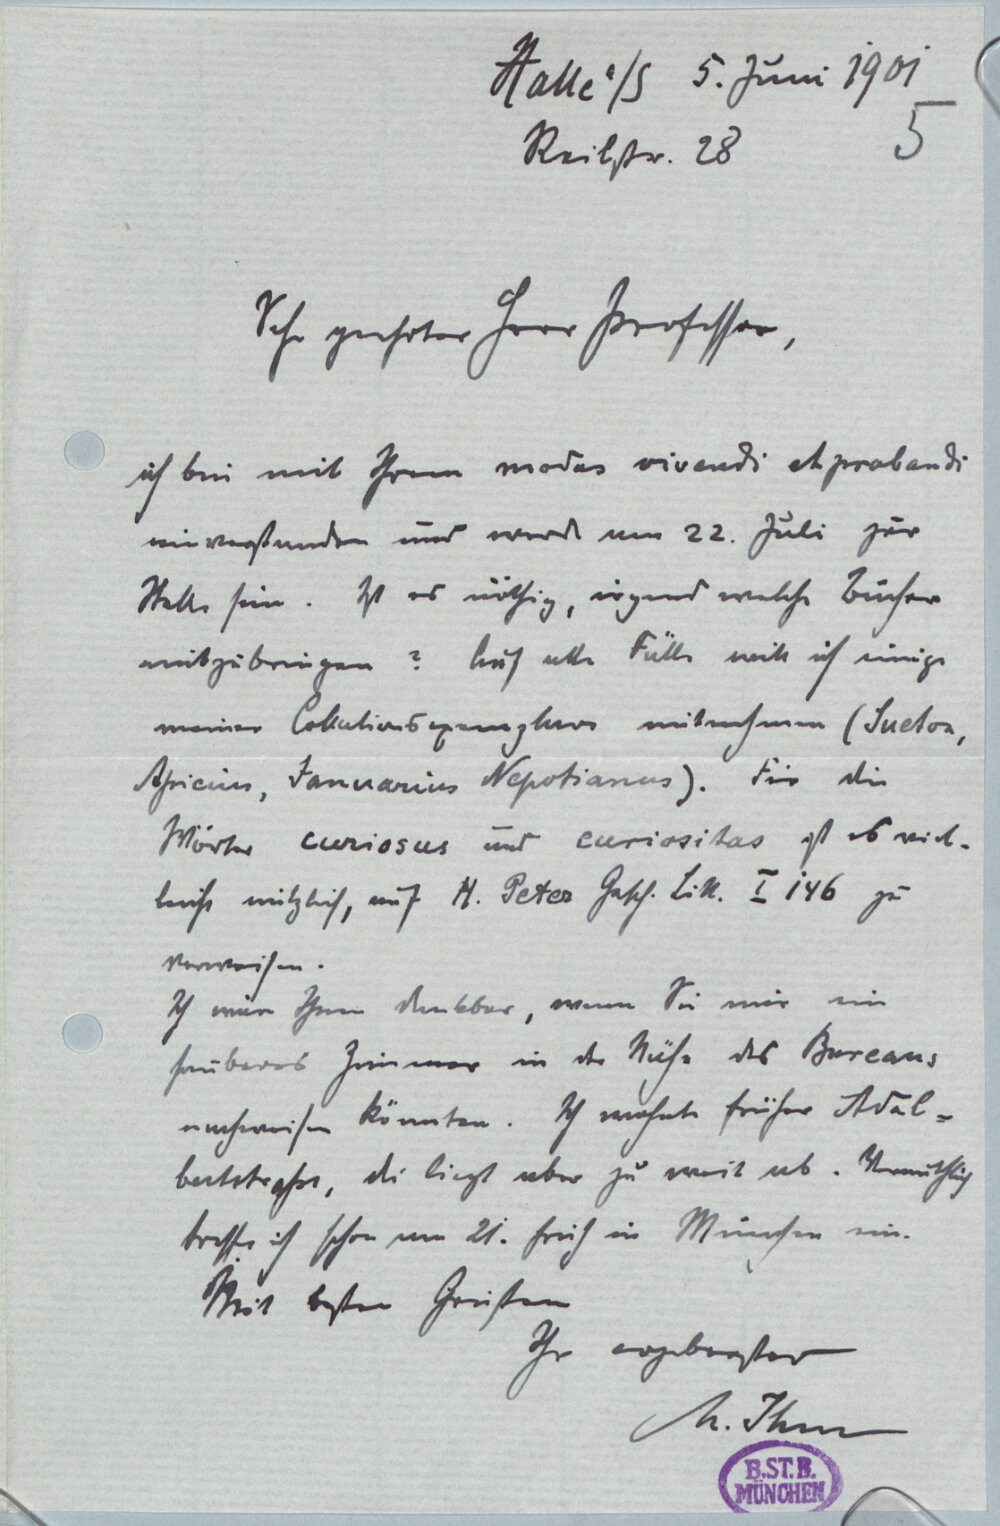 Halle a/S 5. Juni 1901
5
Reilstr. 28
Sehr geehrter Herr Professor,
ich bin mit Ihrem modus vivendi et probandi
einverstanden und werde am 22. Juli zur
Stelle sein. Ist es nöthig, irgend welche Bücher
mitzubringen? Auf alle Fälle will ich einige
meiner Collationsexemplare mitnehmen (Sueton,
Apicius, Januarius Nepotianus). Für die
Wörter curiosus und curiositas ist es viel-
leicht nützlich, auf H. Peter Gesch. Litt. I 146 zu
verweisen.
Ich wäre Ihnen dankbar, wenn Sie mir ein
sauberes Zimmer in der Nähe des Bureaus
nachweisen könnten. Ich wohnte früher Adal-
bertstrasse, die liegt aber zu weit ab. Vermuthlich
treffe ich schon am 21. früh in München ein.
Mit besten Grüßen
Ihr ergebenster
M. Ihm
B.ST.B.
MÜNCHEN